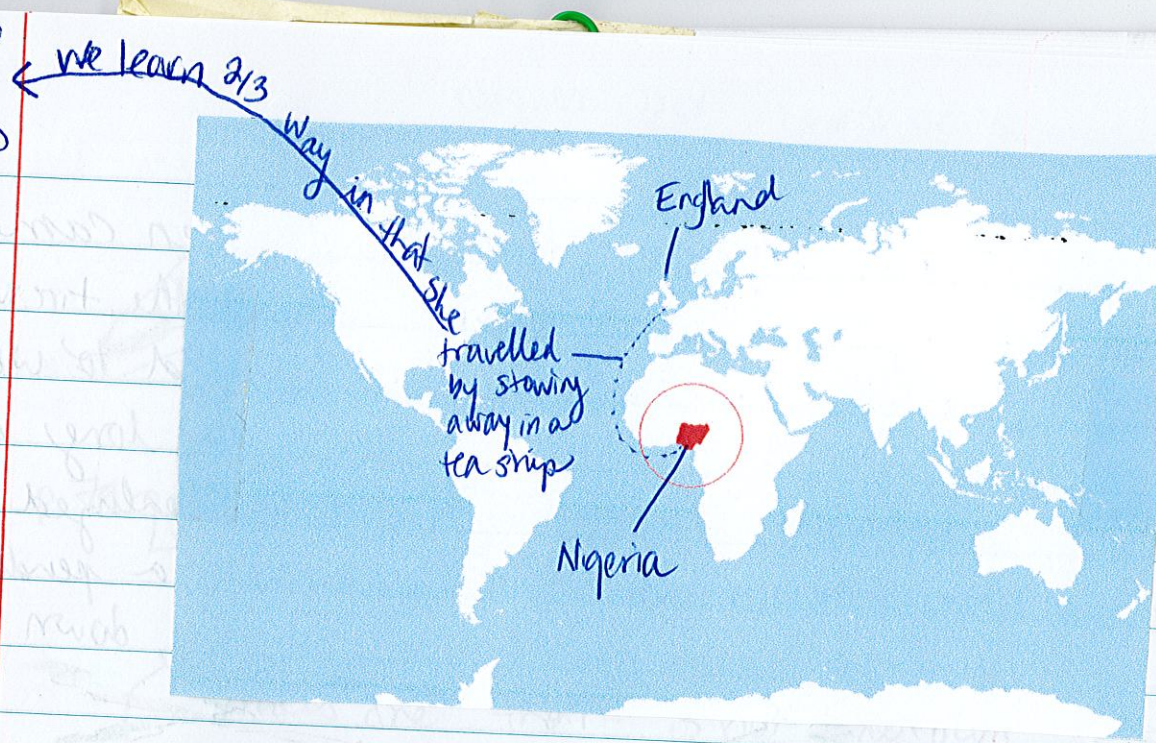 we learn 2/3
way in that she
travelled
by stowing
away in a
tea ship
England
Nigeria